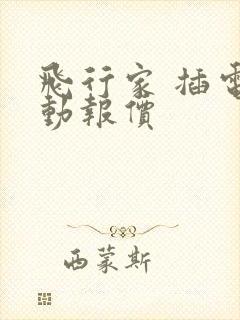 飛行家 插電
動報價
西蒙斯